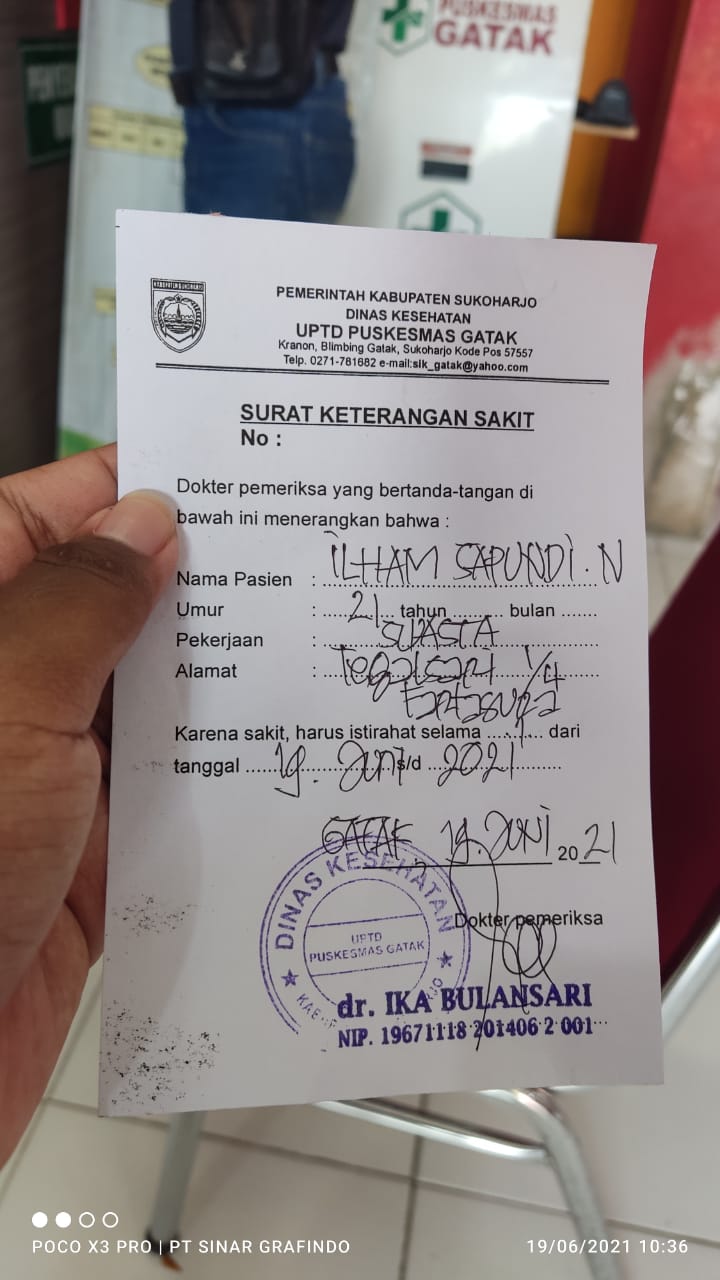 PUSKESMAS
GATAK
KABUPATEN SUKOHARJO
PEMERINTAH KABUPATEN SUKOHARJO
DINAS KESEHATAN
UPTD PUSKESMAS GATAK
Kranon, Blimbing Gatak, Sukoharjo Kode Pos 57557
Telp. 0271-781682 e-mail:sik_gatak@yahoo.com
SURAT KETERANGAN SAKIT
No :
Dokter pemeriksa yang bertanda-tangan di
bawah ini menerangkan bahwa :
Nama Pasien : ILHAM SAPUNDI. N
Umur : 21 tahun ........ bulan ......
Pekerjaan : SUASTA
Alamat : Tegalsari 1/4
Kartasura
Karena sakit, harus istirahat selama ......... dari
tanggal 19. Juni s/d 2021
GATAK, 19. JUNI 2021
Dokter pemeriksa
DINAS KESEHATAN
UPTD
PUSKESMAS GATAK
dr. IKA BULANSARI
NIP. 19671118 201406 2 001
POCO X3 PRO | PT SINAR GRAFINDO
19/06/2021 10:36